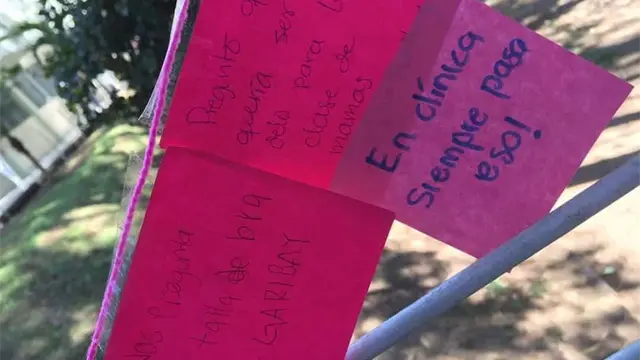 Pregunto q
quería ser
para l
clase de
mamas
En clínica
siempre pasa
eso!
Nos pregunta
talla de bra
GARIBAY